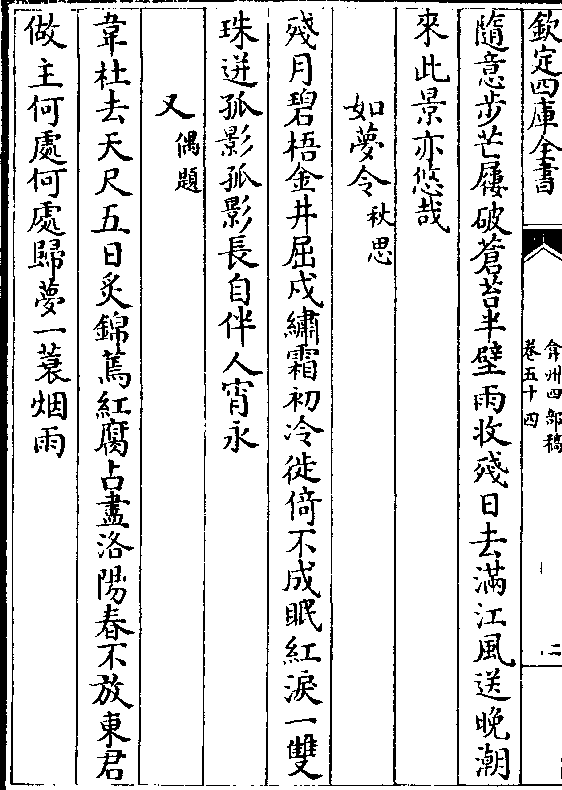 欽定四庫全書
弇州四部稿
卷五十四
二
隨意步芒屨破蒼苔半壁雨收殘日去滿江風送晚潮
來此景亦悠哉
如夢令秋思
殘月碧梧金井屈戍繡霜初冷徙倚不成眠紅淚一雙
珠迸孤影孤影長自伴人宵永
又偶題
韋杜去天尺五日炙錦蔫紅腐占盡洛陽春不放東君
做主何處何處歸夢一蓑烟雨